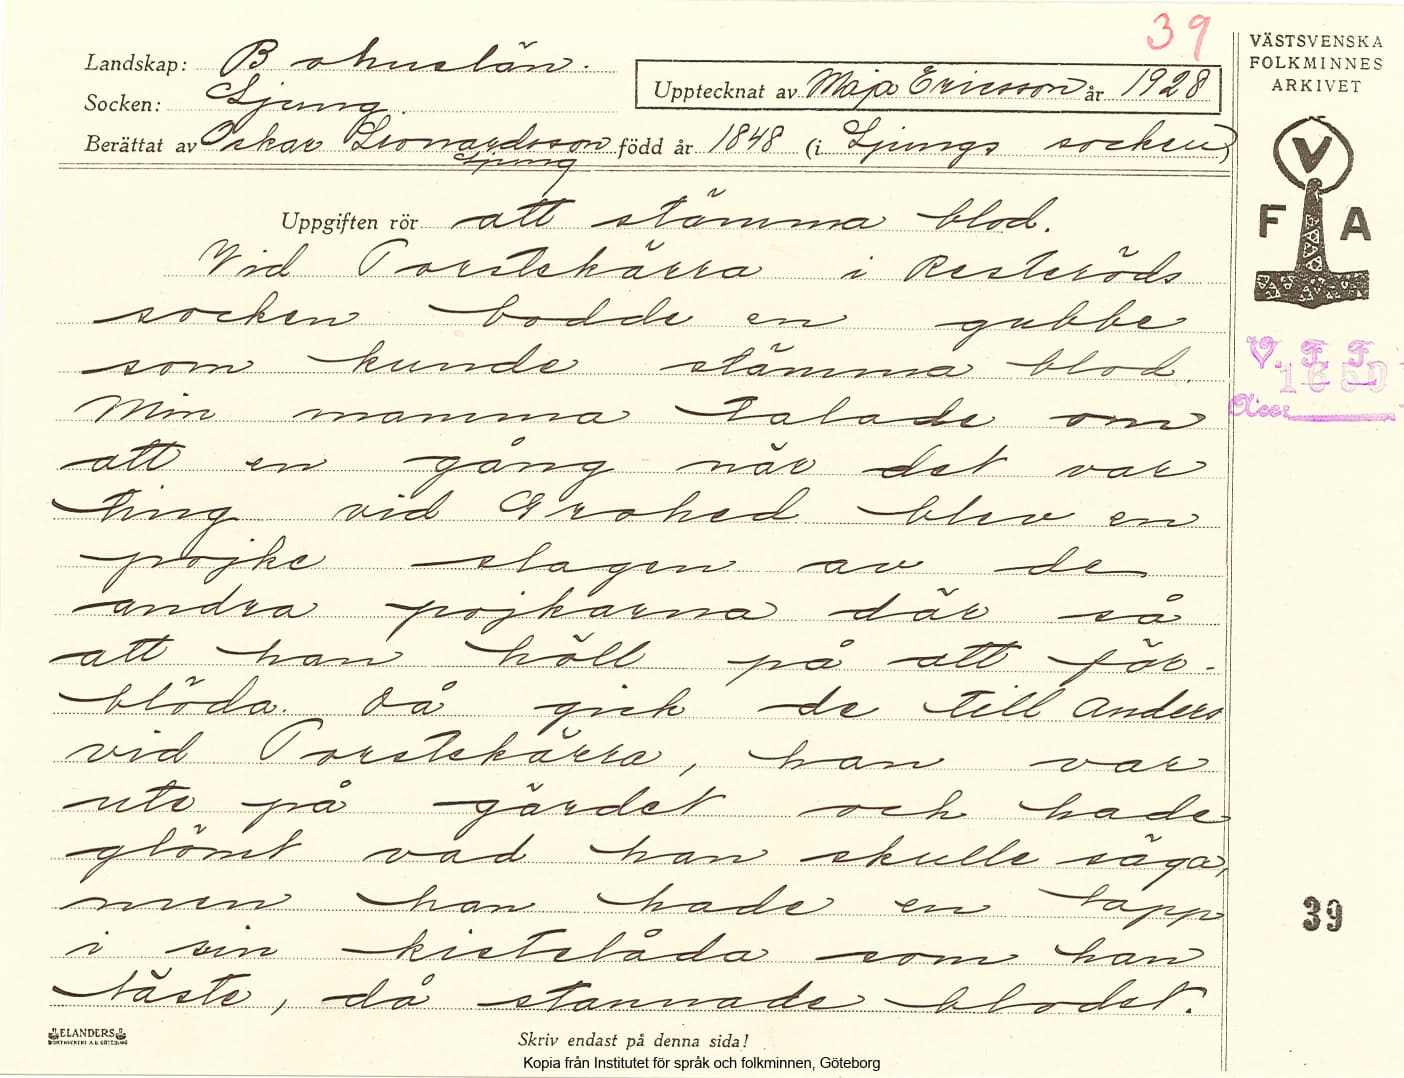 39
VÄSTSVENSKA
FOLKMINNES
ARKIVET
Landskap: Bohuslän.
Upptecknat av Maja Ericsson år 1928
Socken: Ljung
Berättat av Oskar Leonardsson född år 1848 (i Ljungs socken)
Ljung
V
F A
Uppgiften rör att stämma blod.
Vid Torstekärra i Resteröds
socken bodde en gubbe
som kunde stämma blod.
Min mamma talade om
att en gång när det var
ting vid Grohed blev en
pojke slagen av de
andra pojkarna där så
att han höll på att för-
blöda. Då gick de till Anders
vid Torstekärra, han var
ute på gärdet och hade
glömt vad han skulle säga,
men han hade en lapp
i sin kistelåda som han
läste, då stannade blodet.
V. F. F.
Acc:
39
ELANDERS
Skriv endast på denna sida!
Kopia från Institutet för språk och folkminnen, Göteborg